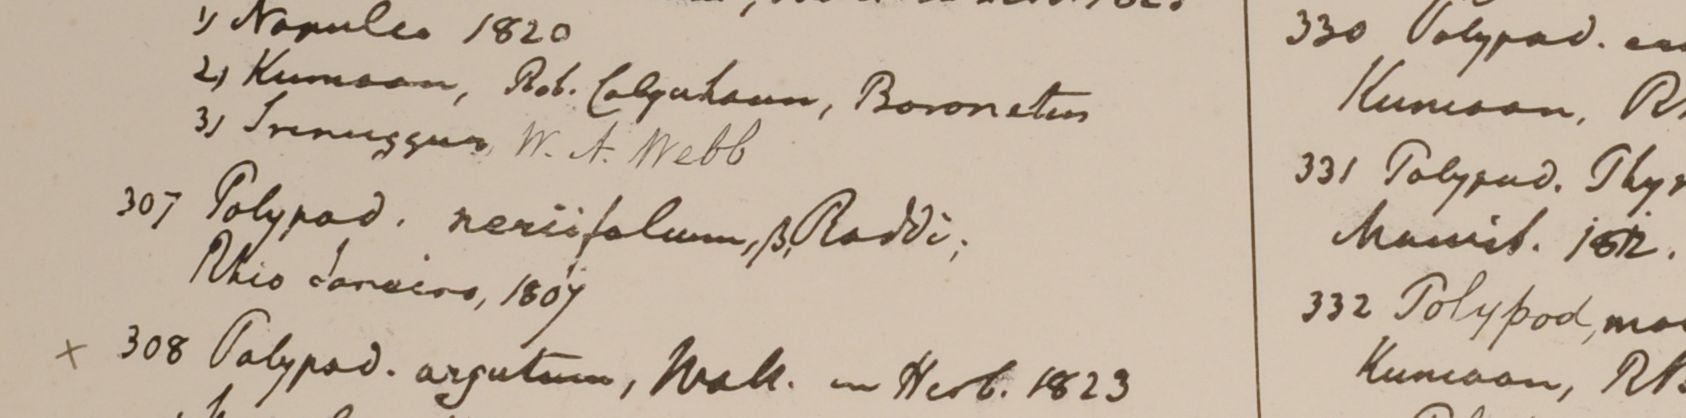 1) Napulia 1820
2) Kumaon, Rob. Colquhoun, Baronetus
3) Srenuggur, W. A. Webb
307 Polypod. neriifolium, β, Raddi;
Rhio Janeiro, 1807
× 308 Polypod. argutum, Wall. in Herb. 1823
330 Polypod.
Kumaon, R
331 Polypod. Thyr
Maurit. 1812.
332 Polypod,
Kumaon, R